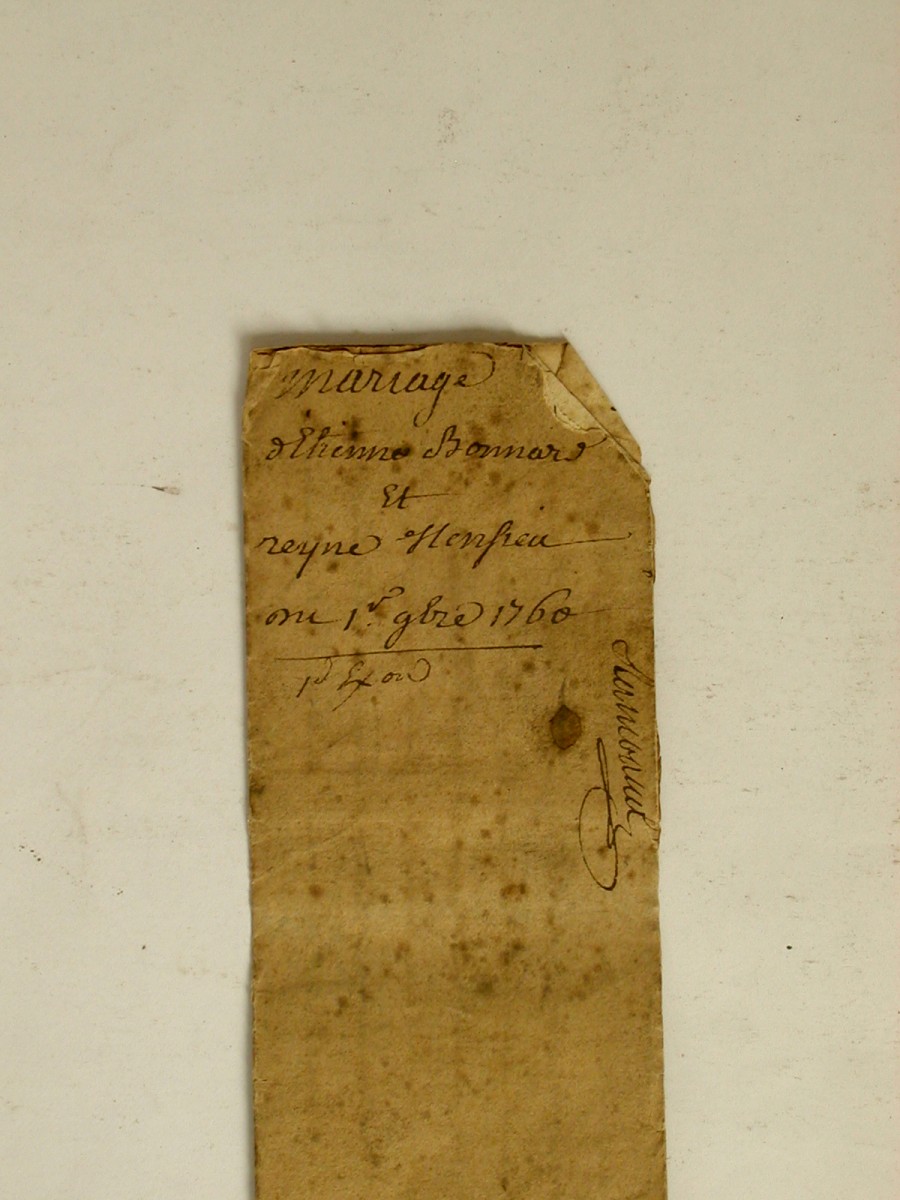 mariage
d'Etienne Bonnard
Et
reyne Monfieu
Du 1er 9bre 1760
1d Exon